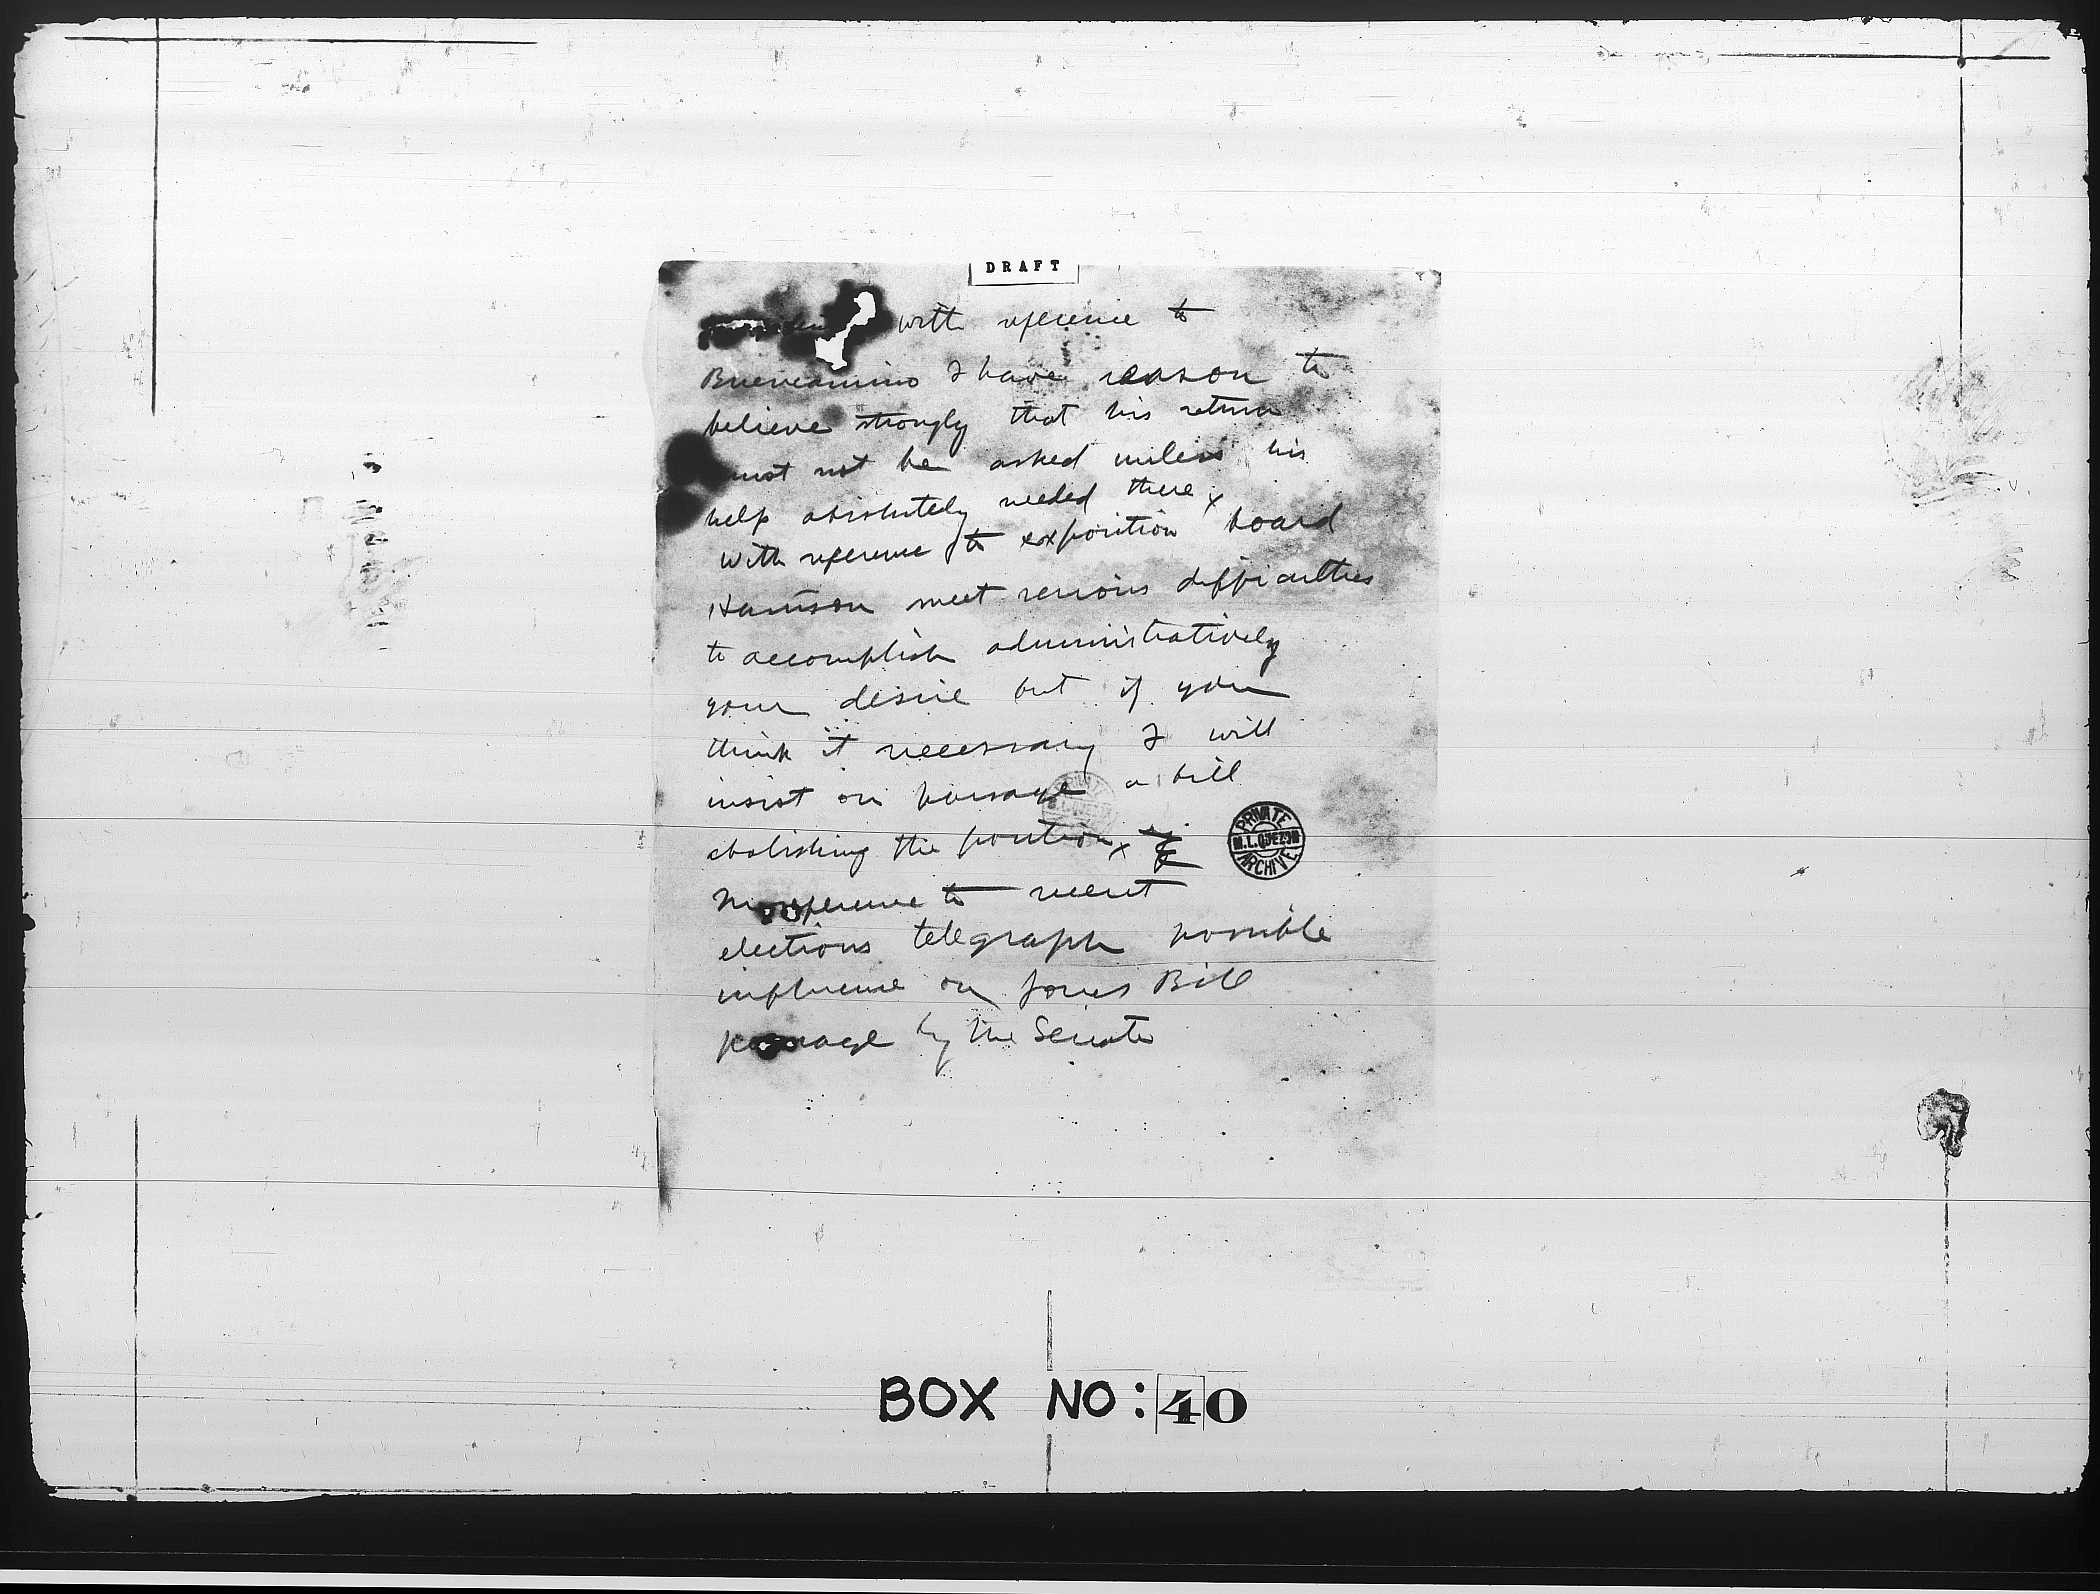 DRAFT
with reference to
Buencamino I have reason to
believe strongly that his return
must not be asked unless his
help absolutely needed there x
with reference to exposition board
Harrison meet serious difficulties
to accomplish administratively
your desire but if you
think it necessary I will
insist on passage a bill
abolishing the position x
reference to recent
elections telegraph possible
influence on Jones Bill
passage by the Senate
PRIVATE
M.L.QUEZON
ARCHIVE
BOX NO: 40